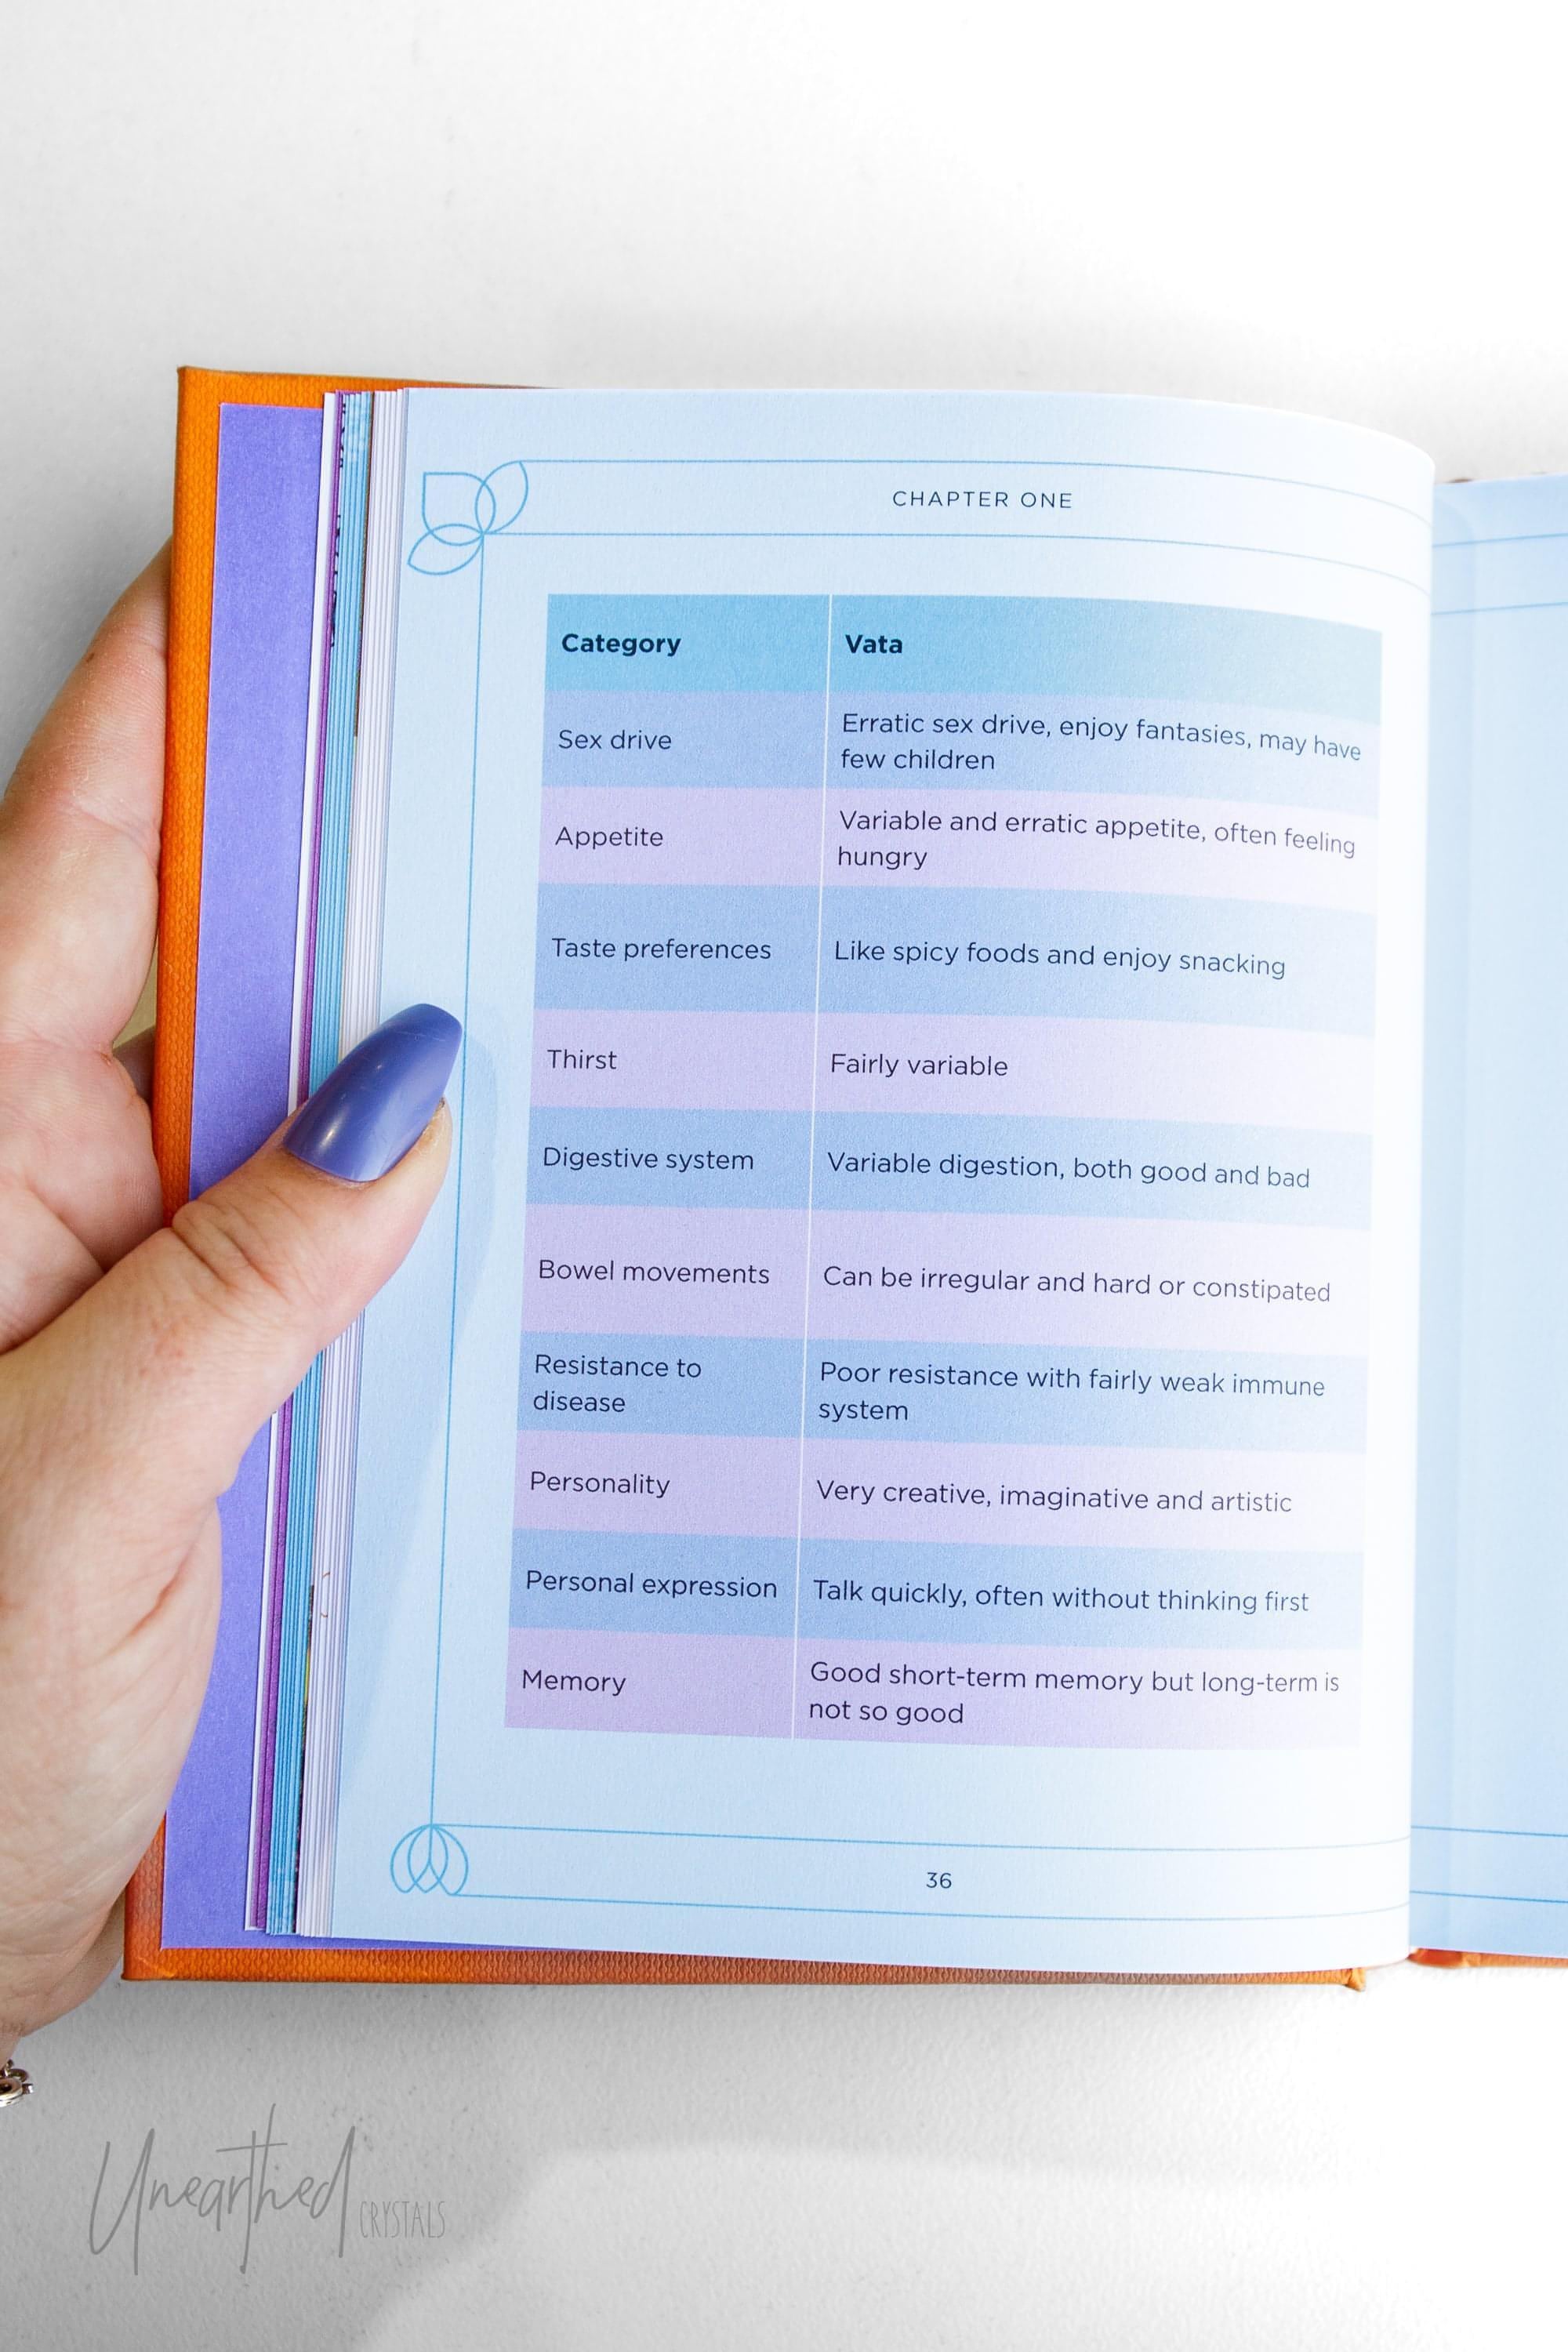 CHAPTER ONE
Category
Vata
Sex drive
Erratic sex drive, enjoy fantasies, may have
few children
Appetite
Variable and erratic appetite, often feeling
hungry
Taste preferences
Like spicy foods and enjoy snacking
Thirst
Fairly variable
Digestive system
Variable digestion, both good and bad
Bowel movements
Can be irregular and hard or constipated
Resistance to
disease
Poor resistance with fairly weak immune
system
Personality
Very creative, imaginative and artistic
Personal expression
Talk quickly, often without thinking first
Memory
Good short-term memory but long-term is
not so good
36
Unearthed CRYSTALS